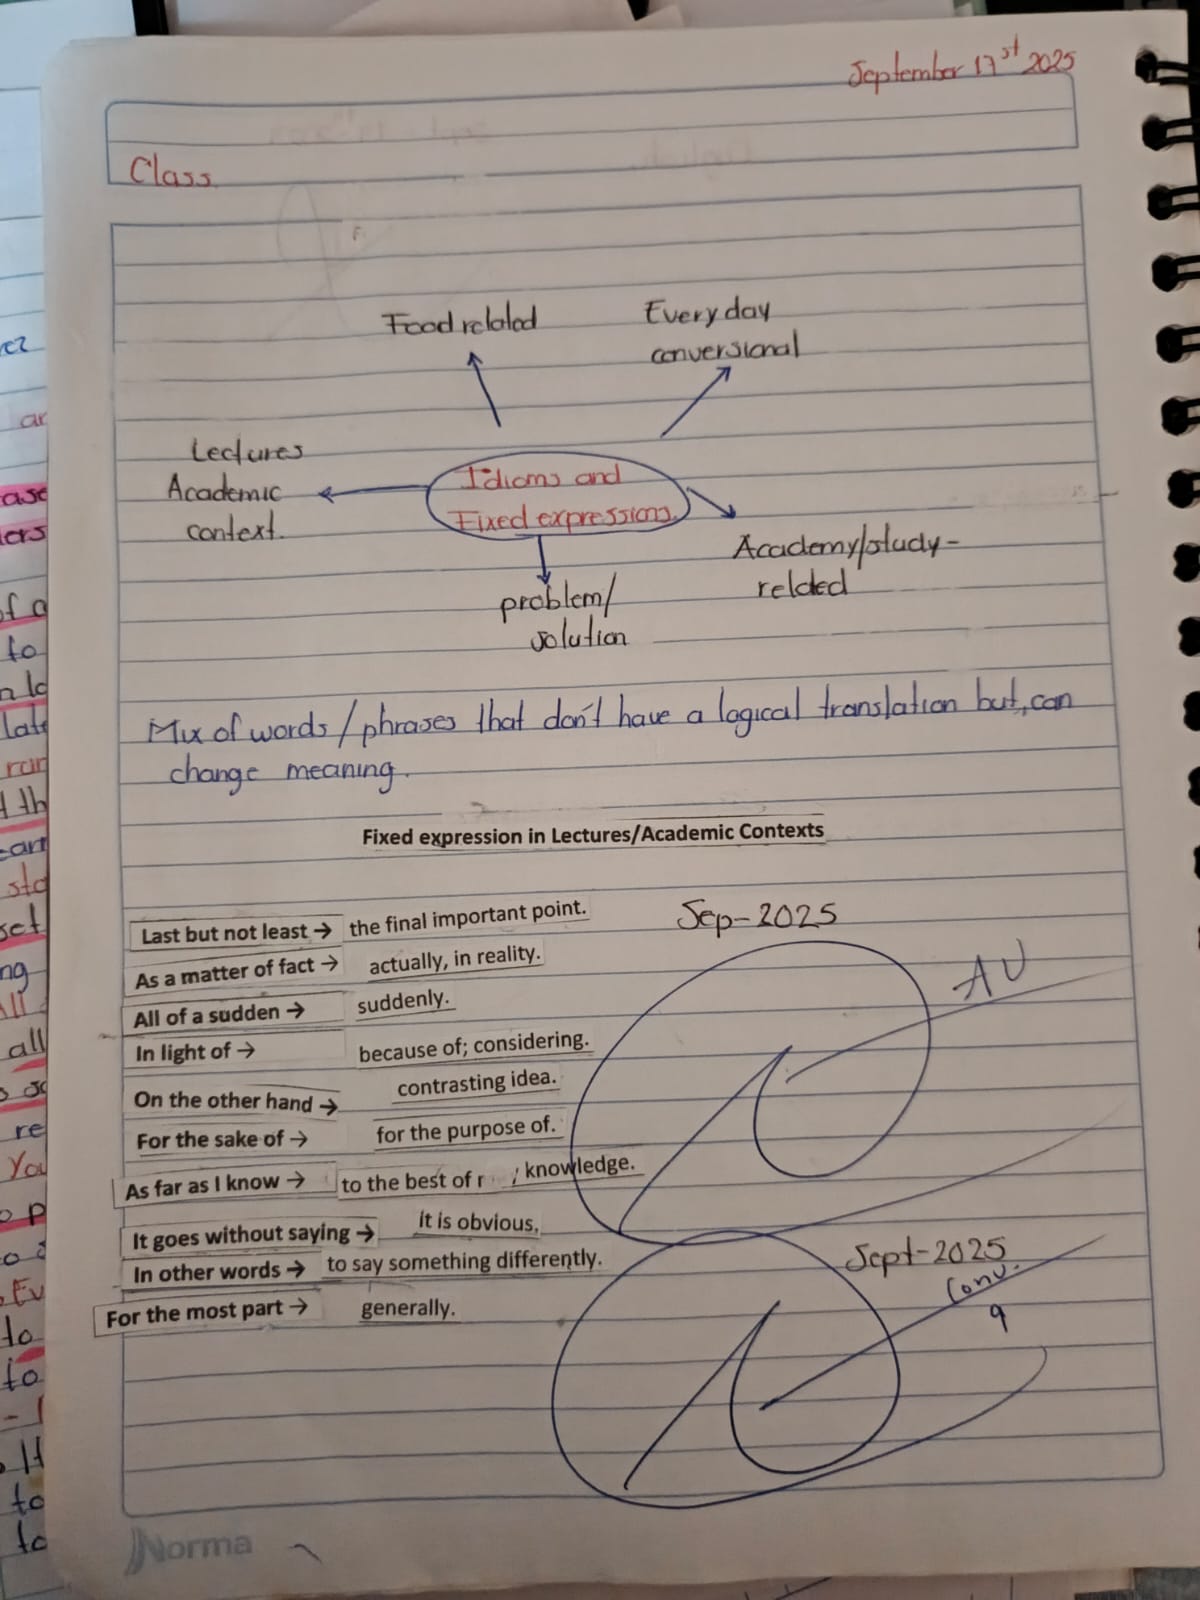 September 17st 2025
Class
Food related
Every day
conversional
Lectures
Academic
context.
Idioms and
Fixed expressions.
Academy/study-
related
problem/
solution
Mix of words/phrases that don't have a logical translation but, can
change meaning.
Fixed expression in Lectures/Academic Contexts
Last but not least → the final important point.
Sep-2025
As a matter of fact → actually, in reality.
AU
All of a sudden → suddenly.
In light of → because of; considering.
On the other hand → contrasting idea.
For the sake of → for the purpose of.
As far as I know → to the best of knowledge.
It goes without saying → it is obvious.
In other words → to say something differently.
Sept-2025
Conv.
9
For the most part → generally.
Norma
ar
ase
of a
to
late
all
re
You
to
to
to